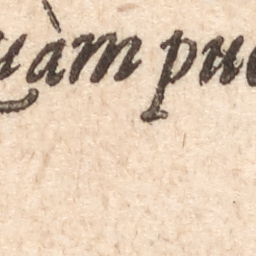 uàm pu